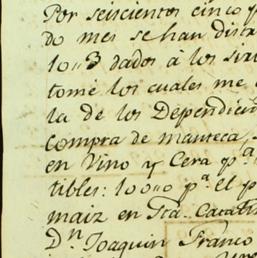 Por seiscientos cinco p
do mes se han distri
10..3 dados á los sir
tome los cuales me
la de los Dependien
compra de manteca,
en Vino y Cera pª
tibles: 10..0 pª el p
maiz en Sta. Catali
Dⁿ Joaquin Franco